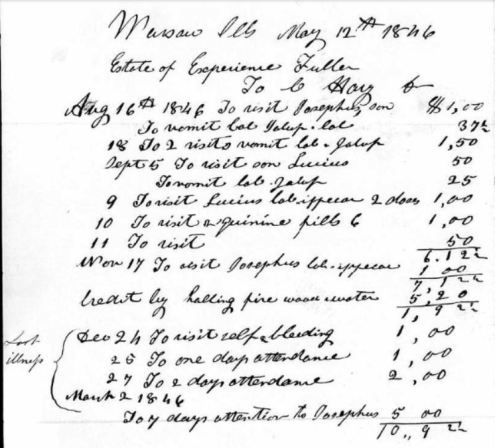 Warsaw Ills May 12th 1846
Estate of Experience Fuller
To C Hay Dr
Aug 16th 1846 To visit Josephus, son $1,00
To vomit cal Jalup. cal 37½
18 To 2 visits vomit cal. Jalup 1,50
Sept 5 To visit son Lucius 50
To vomit cal. Jalup 25
9 To visit Lucius cal. ippecac 2 doses 1,00
10 To visit & quinine pills 6 1,00
11 To visit 50
6.12½
Nov 17 To visit Josephus cal. ippecac 1 00
7,12½
Credit by halling fire wood & water 5,20
1,92½
Last illness
Dec 24 To visit self & bleeding 1,00
25 To one days attendance 1,00
27 To 2 days attendance 2,00
March 2 1846
To 7 days attention to Josephus 5 00
10,92½